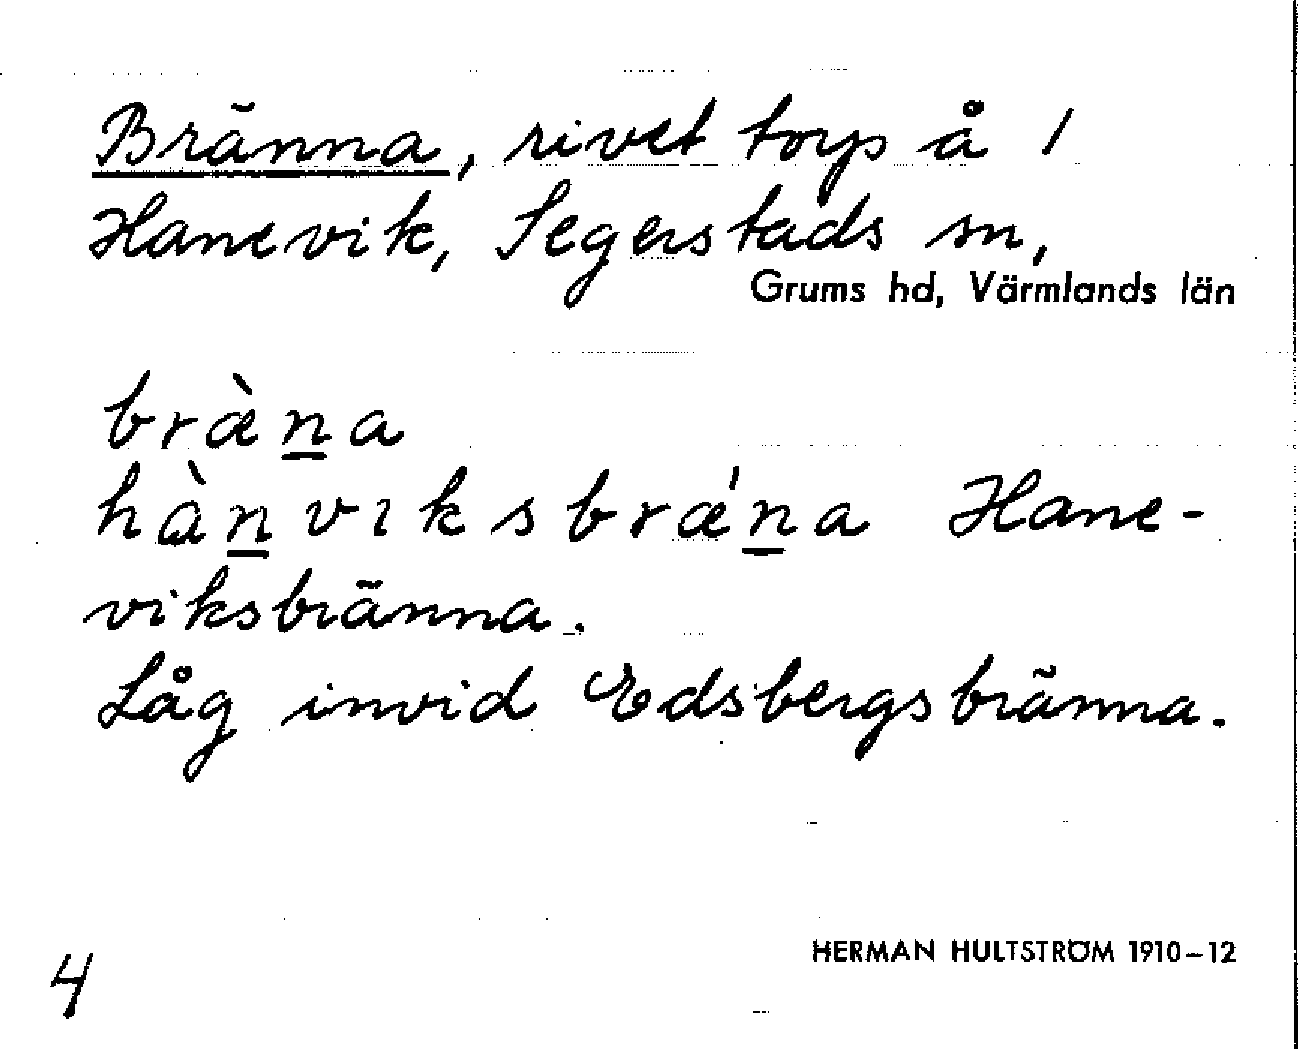 Bränna, rivet torp å 1
Hanevik, Segerstads sn,
Grums hd, Värmlands län
bræ̀n̲a
hàn̲vıksbrǽn̲a Hane-
viksbränna.
Låg invid Edsbergsbränna.
HERMAN HULTSTRÖM 1910-12
4